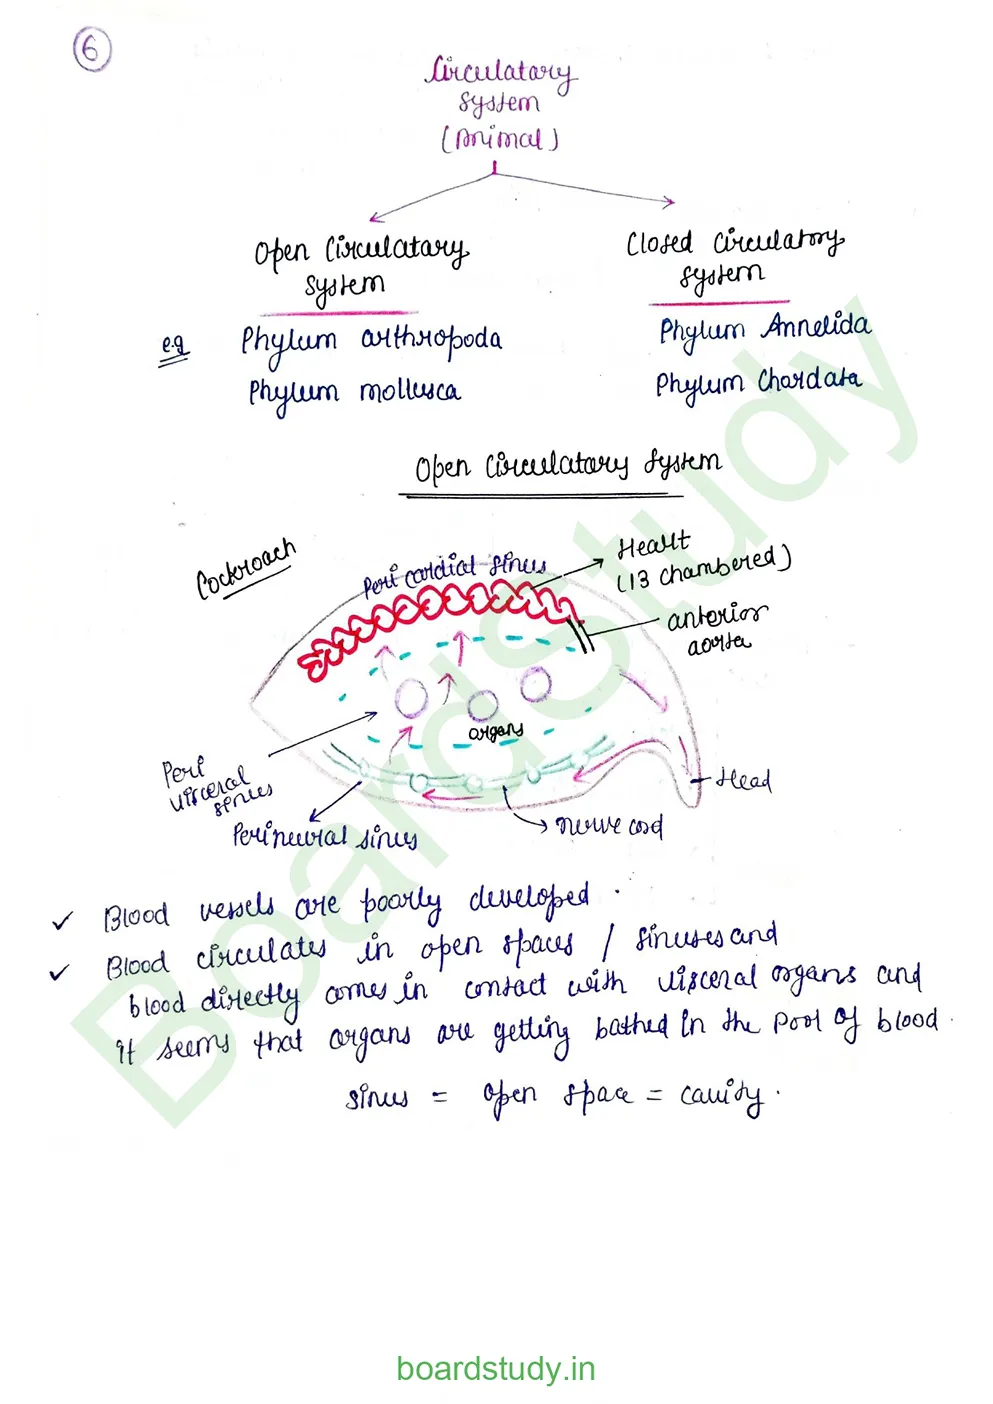 6
Circulatary
system
(Animal)
Open Circulatary
system
Closed circulatory
system
e.g
Phylum arthropoda
Phylum Annelida
Phylum mollusca
Phylum Chordata
Open Circulatary System
Cockroach
Peri cardial sinus
Heart
(13 chambered)
anterior
aorta
organs
Peri
visceral
sinus
Head
Perineural sinus
nerve cord
✓ Blood vessels are poorly developed.
✓ Blood circulates in open spaces / sinuses and
blood directly comes in contact with visceral organs and
it seems that organs are getting bathed in the pool of blood.
sinus = open space = cavity.
BoardStudy
boardstudy.in